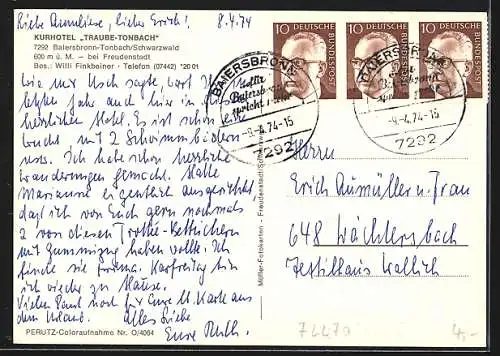 Liebe Annliese, lieber Erich! 8.4.74
KURHOTEL „TRAUBE-TONBACH"
7292 Baiersbronn-Tonbach/Schwarzwald
600 m ü. M. – bei Freudenstadt
Bes.: Willi Finkbeiner · Telefon (07442) *20 01
wie mir Usch sagte, wart Ihr
letztes Jahr auch hier in diesem
herrlichen Hotel. Es ist schon
mit 2 Schwimmbädern
usw. Ich habe schon herrliche
Wanderungen gemacht. Hatte
Marianne eigentlich ausgerichtet,
daß ich von Euch gern nochmals
2 von diesen Frottee-Betttüchern
mit Gummizug haben wollte. Ich
finde sie prima. Karfreitag bin
ich wieder zu Hause.
Vielen Dank noch für Eure Karte aus
dem Urlaub. Alles Liebe
Eure Ruth.
PERUTZ-Coloraufnahme Nr. O/4064
Müller-Fotokarten - Freudenstadt/Schwarzwald
10 DEUTSCHE BUNDESPOST
10 DEUTSCHE BUNDESPOST
10 DEUTSCHE BUNDESPOST
BAIERSBRONN
Baiersbronn
-9.4.74-15
7292
BAIERSBRONN
-9.4.74-15
7292
Herrn
Erich Aumüller u. Frau
648 Wächtersbach
Textilhaus Wallich
72270
4,-